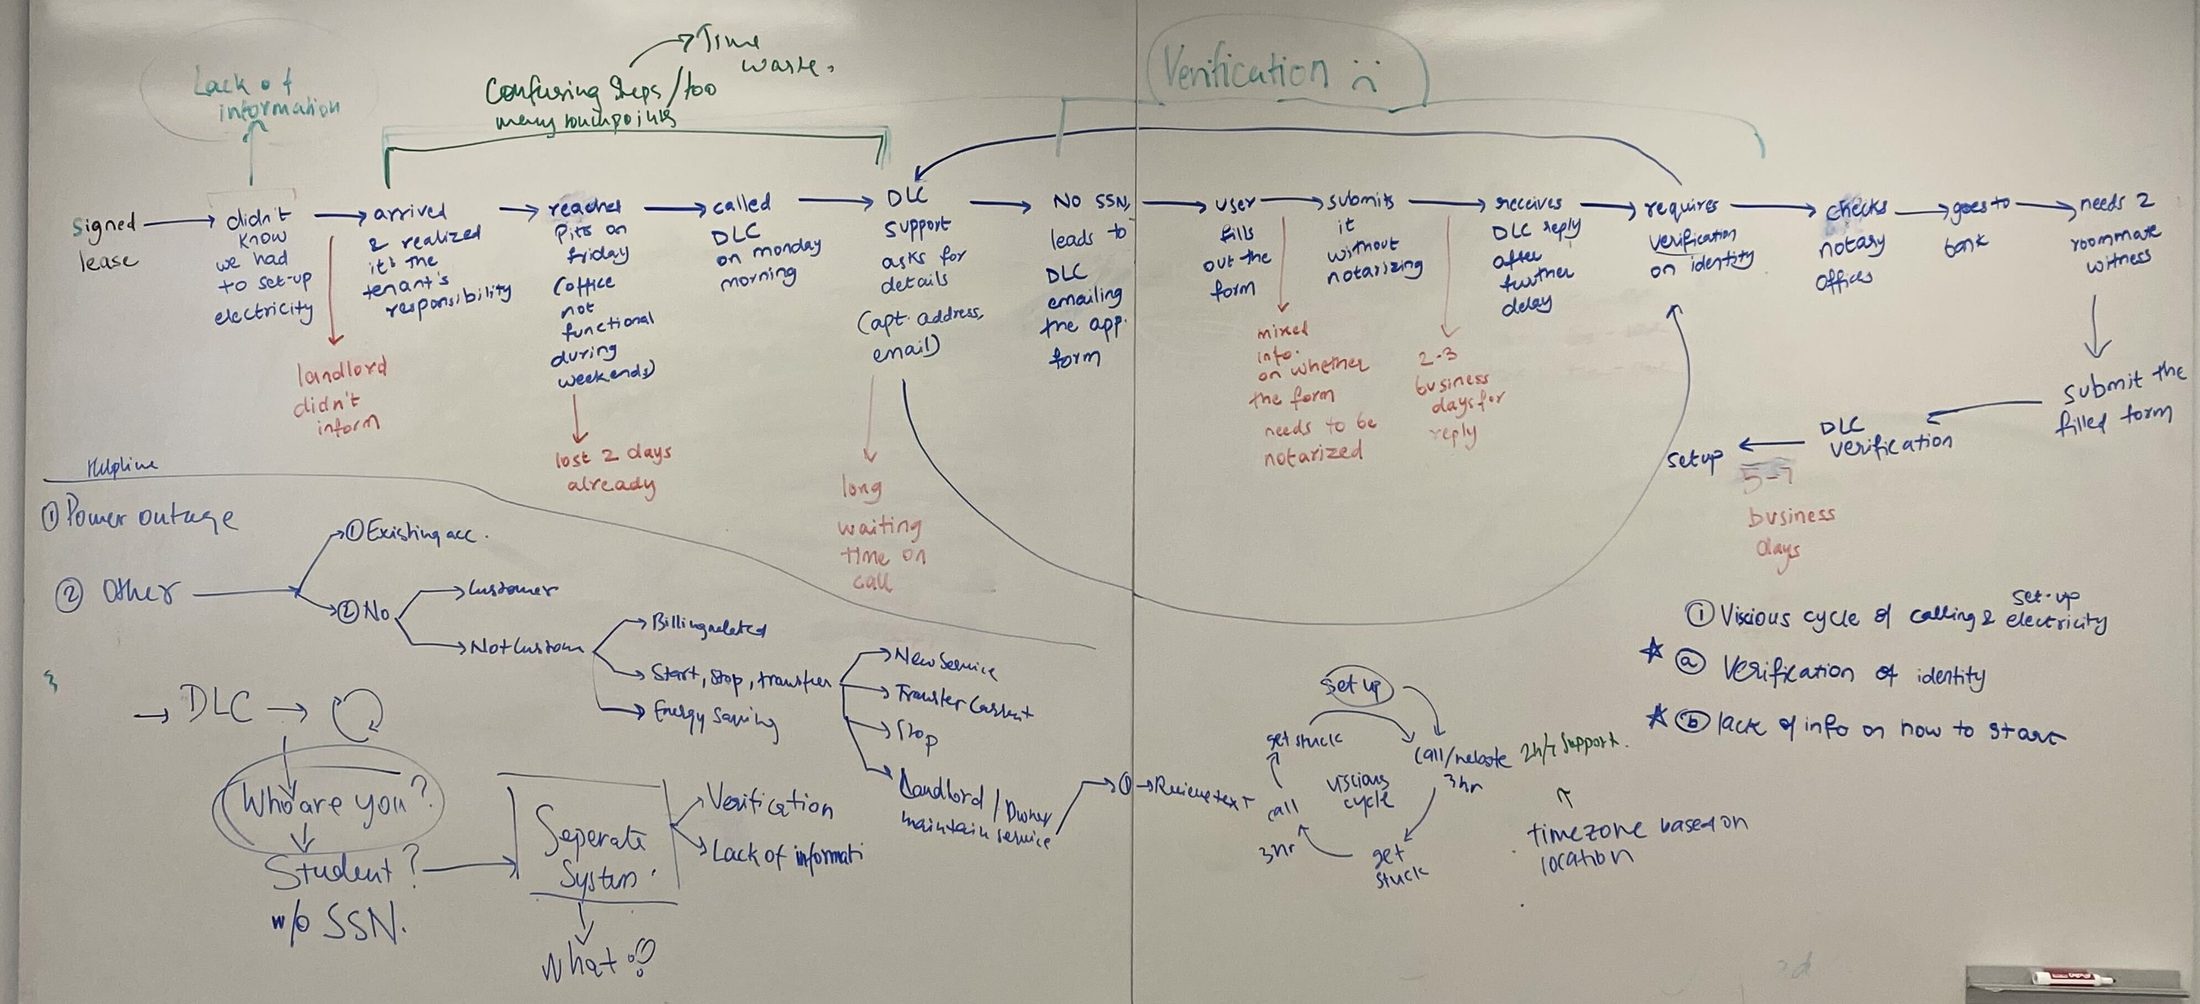 Lack of
information
Time
waste.
Confusing Steps/too
many touchpoints
Verification :(
Signed
lease
didn't
know
we had
to set-up
electricity
arrived
& realized
it's the
tenant's
responsibility
reached
Pitts on
friday
(office
not
functional
during
weekends)
called
DLC
on monday
morning
DLC
support
asks for
details
(apt. address,
email)
No SSN,
leads to
DLC
emailing
the app.
form
user
fills
out the
form
submits
it
without
notarizing
receives
DLC reply
after
further
delay
requires
verification
on identity
checks
notary
offices
goes to
bank
needs 2
roommate
witness
submit the
filled form
DLC
verification
setup
5-7
business
days
landlord
didn't
inform
lost 2 days
already
long
waiting
time on
call
mixed
info.
on whether
the form
needs to be
notarized
2-3
business
days for
reply
Helpline
① Power outage
② Other
① Existing acc.
② No
Customer
Not Custom
Billing related
Start, stop, transfer
Energy Saving
New Service
Transfer Current
Stop
Landlord / Owner
maintain service
①
DLC
Who are you?
Student?
w/o SSN.
Seperate
System.
Verification
Lack of informati
What
set up
get stuck
call/website
3hr
24/7 support.
viscious
cycle
call
3hr
get
stuck
timezone based on
location
① Viscious cycle of calling & set-up
electricity
★ ⓐ Verification of identity
★ ⓑ lack of info on how to start